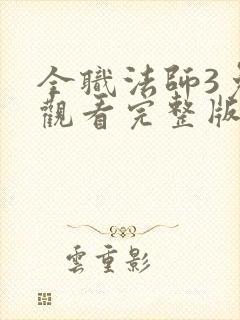 全職法師3
觀看完整版
雲重影